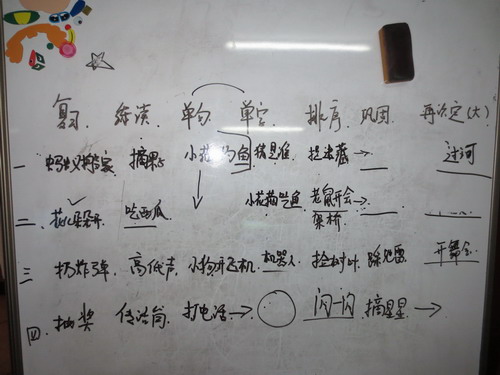 复习. 练读. 单句. 单字. 排序. 巩固. 再决定(大)
一 蚂蚁搬家 摘果子 小花猫钓鱼 猜是谁 捉迷藏→ 过河
二. 花儿朵朵开 吃西瓜 小花猫吃鱼 老鼠开会
架桥
三 扔炸弹. 高低声. 小狗开飞机. 机器人. 捡树叶 除地雷 开舞会
四. 抽奖 传话筒. 打电话→ 闪一闪 摘星星→